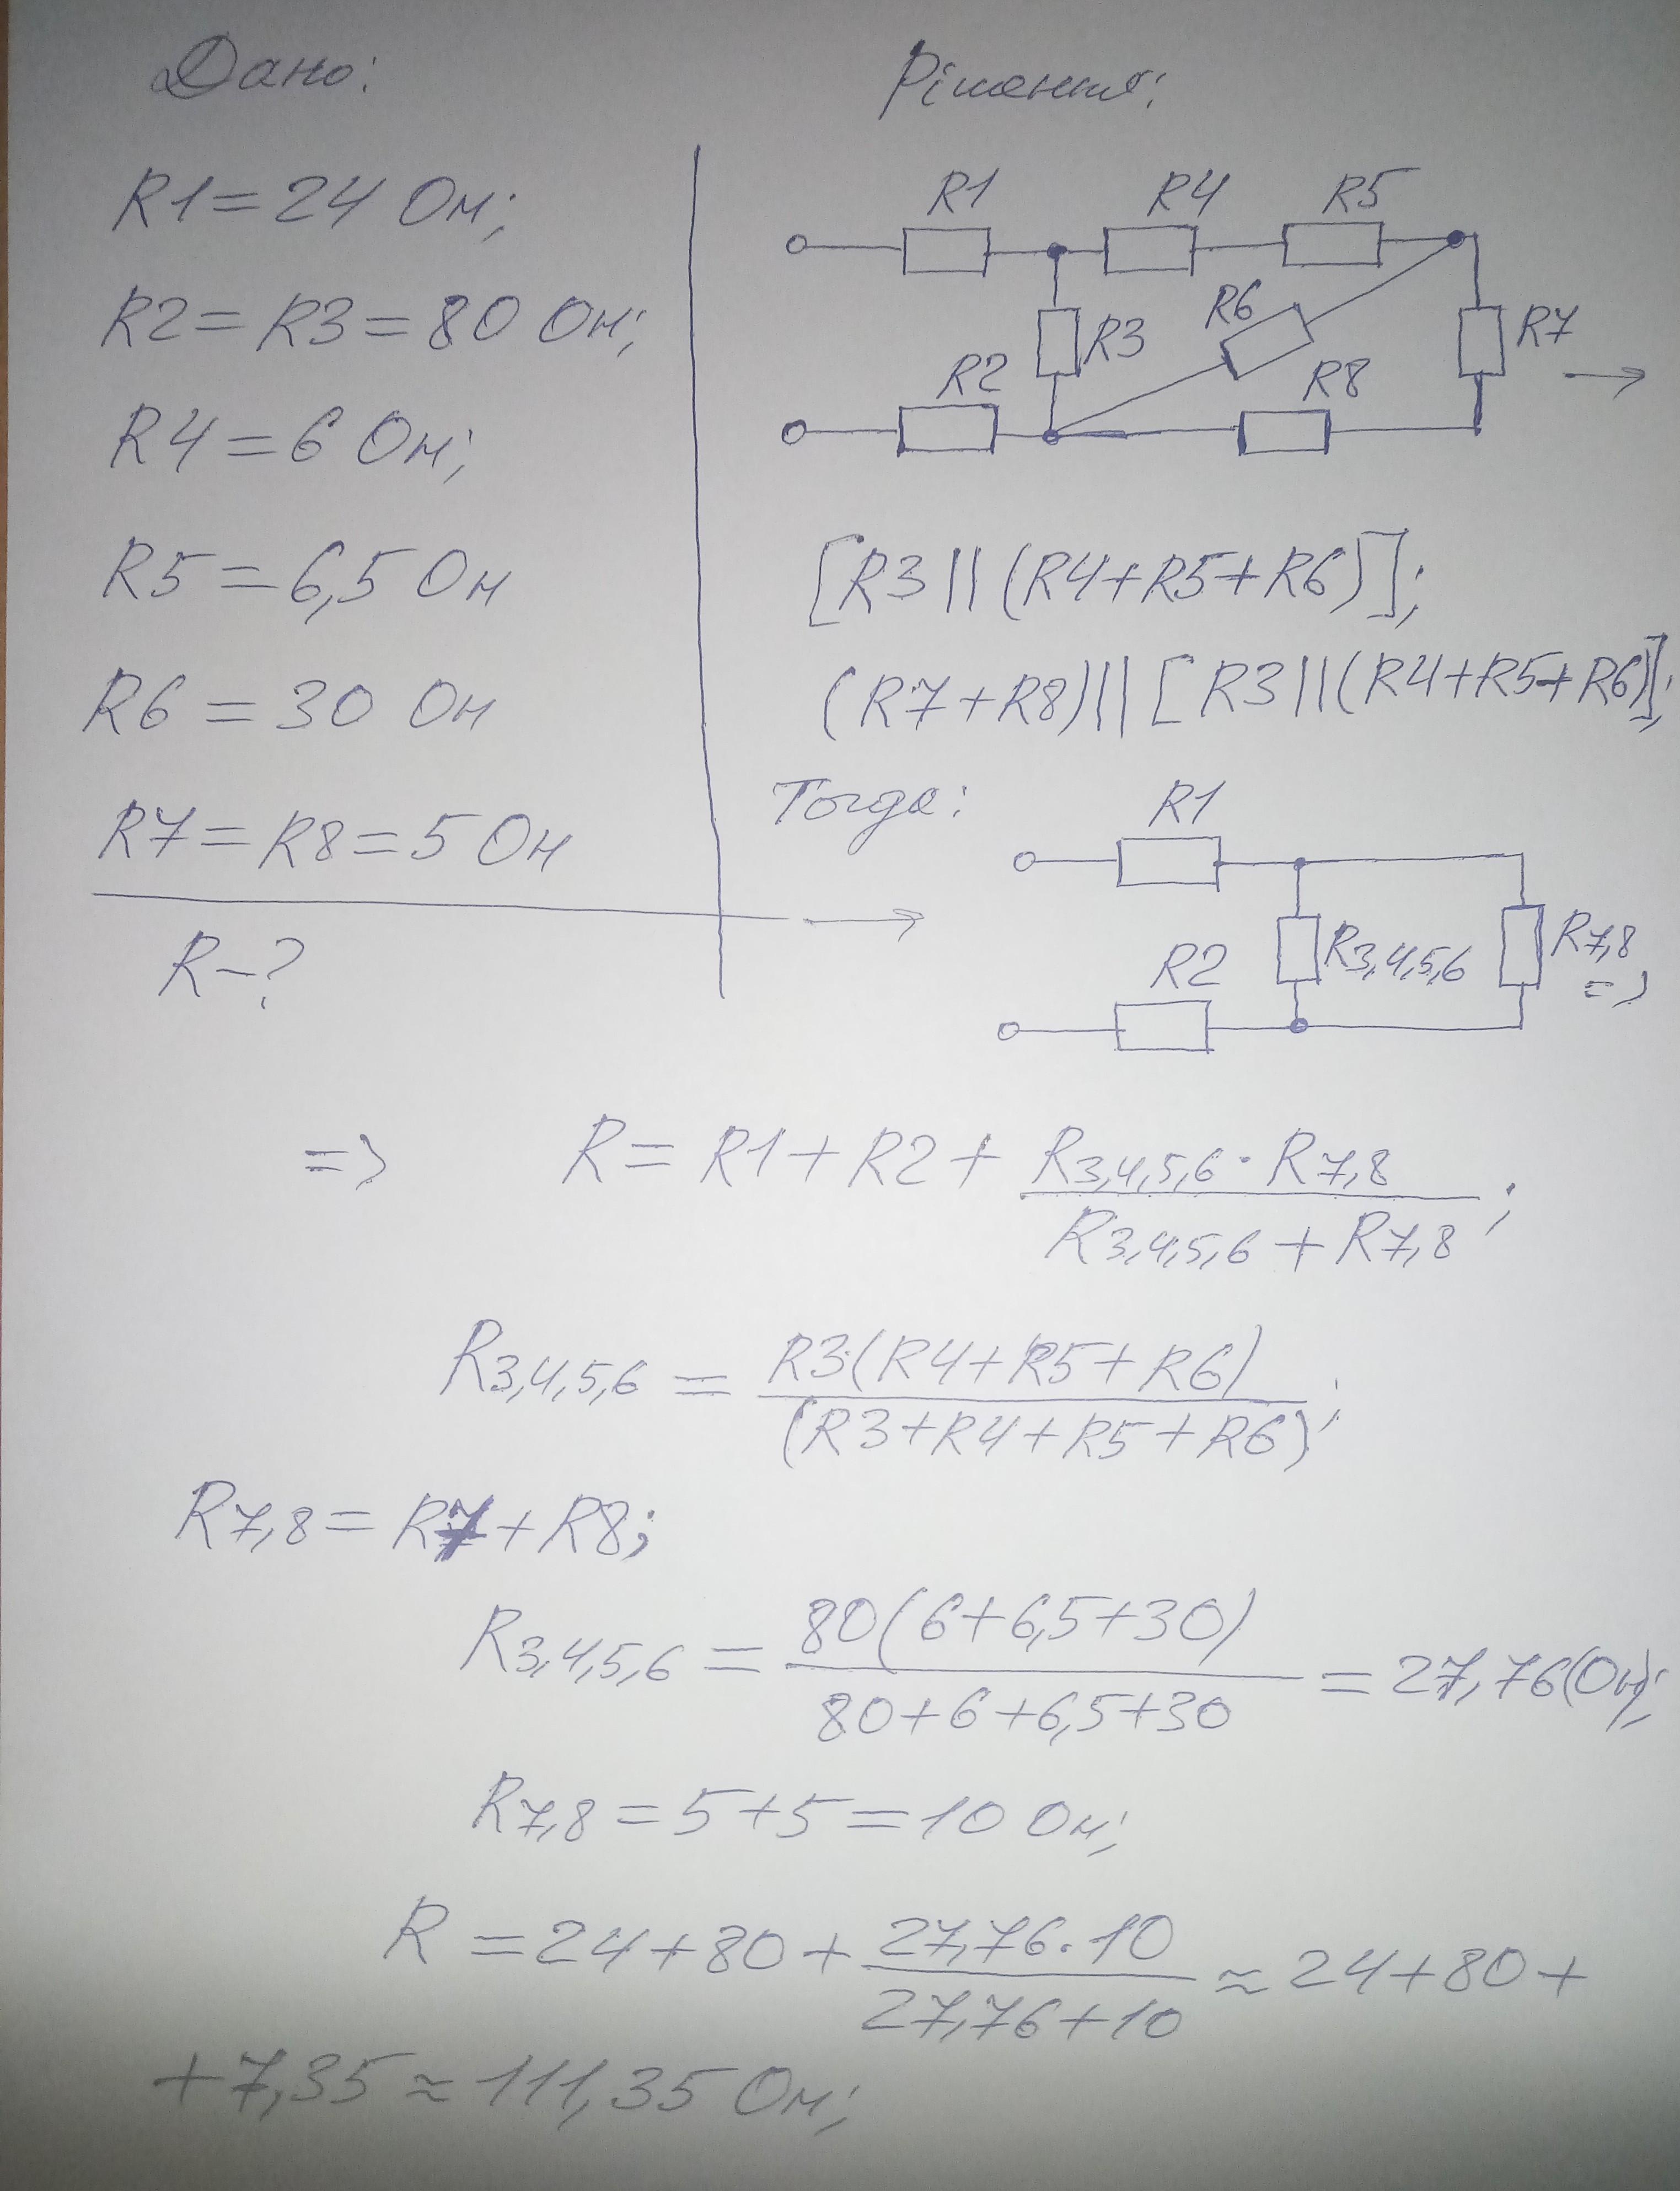 Дано:
R1=24 Ом;
R2=R3=80 Ом;
R4=6 Ом;
R5=6,5 Ом
R6=30 Ом
R7=R8=5 Ом
R-?
Рішення:
R1 R4 R5
R6
R3 R7
R2 R8
[R3||(R4+R5+R6)];
(R7+R8)||[R3||(R4+R5+R6)];
Тогда:
R1
R3,4,5,6 R7,8
R2
=>
=> R=R1+R2+ R3,4,5,6·R7,8 / R3,4,5,6+R7,8 ;
R3,4,5,6 = R3(R4+R5+R6) / (R3+R4+R5+R6) ;
R7,8=R7+R8;
R3,4,5,6 = 80(6+6,5+30) / 80+6+6,5+30 =27,76(Ом);
R7,8=5+5=10 Ом;
R =24+80+ 27,76·10 / 27,76+10 ≈24+80+
+7,35≈111,35 Ом;